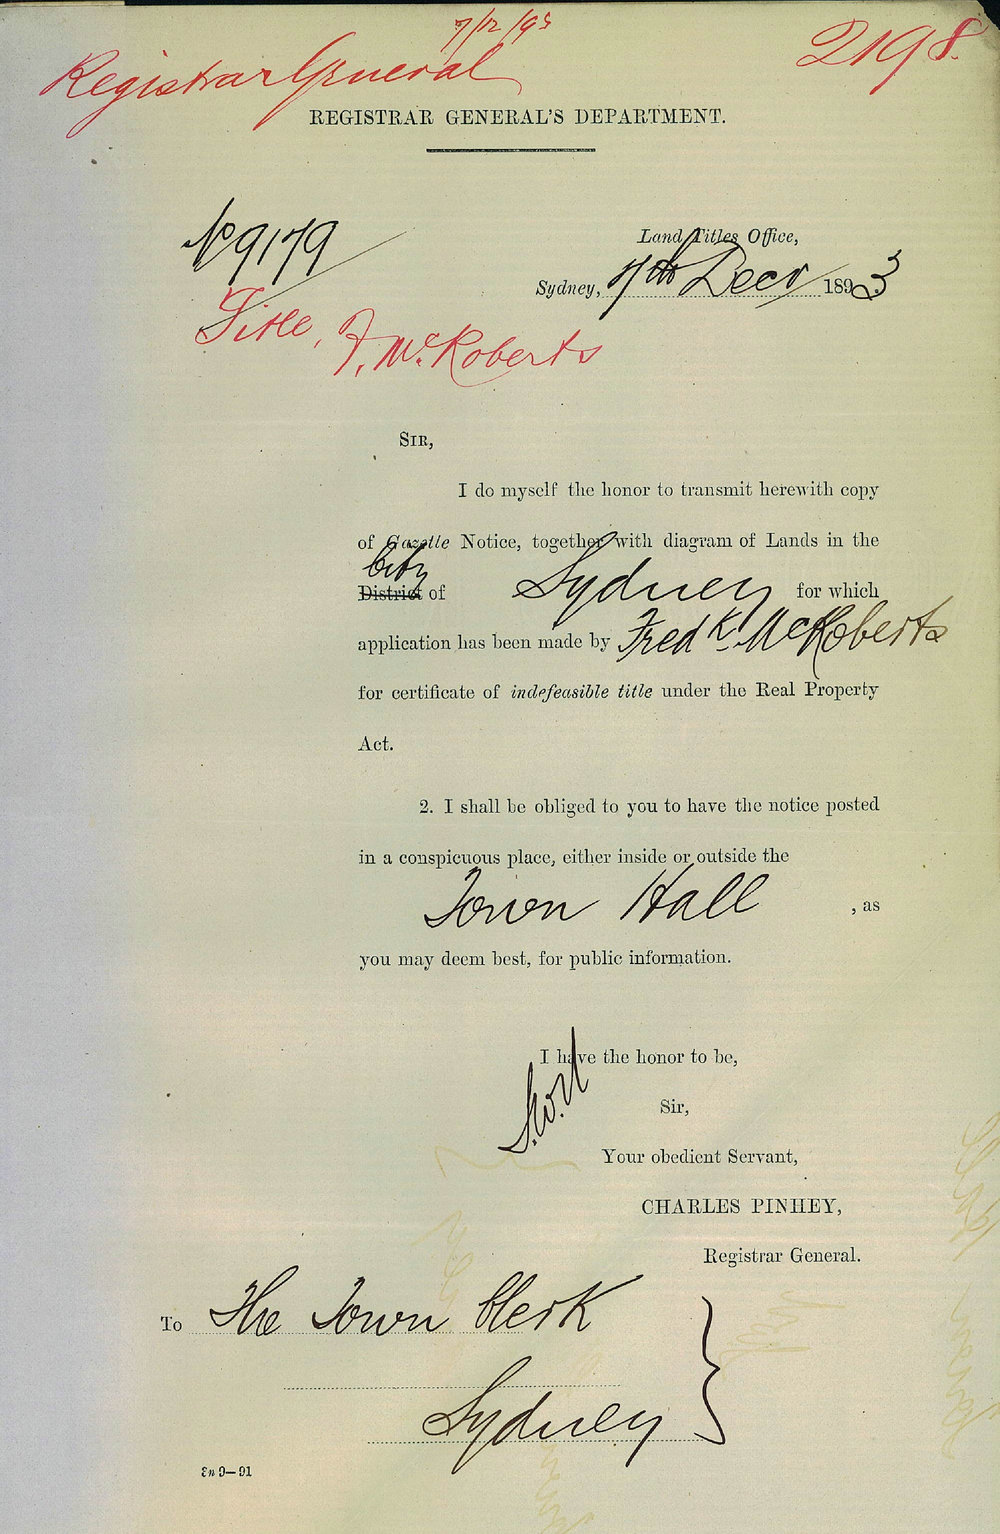 7/12/93
Registrar General
2198.
REGISTRAR GENERAL'S DEPARTMENT.
No 9179
Land Titles Office,
Sydney, 7th Decr 1893
Title, F. McRoberts
SIR,
I do myself the honor to transmit herewith copy
of Gazette Notice, together with diagram of Lands in the
City
District of Sydney for which
application has been made by Fredk. McRoberts
for certificate of indefeasible title under the Real Property
Act.
2. I shall be obliged to you to have the notice posted
in a conspicuous place, either inside or outside the
Town Hall , as
you may deem best, for public information.
I have the honor to be,
Sir,
Your obedient Servant,
CHARLES PINHEY,
Registrar General.
To The Town Clerk
Sydney
9—91